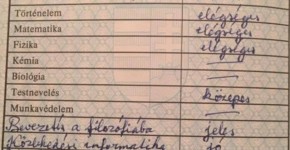 Történelem elégséges
Matematika elégséges
Fizika elégséges
Kémia —
Biológia —
Testnevelés közepes
Munkavédelem —
Bevezetés a filozófiába jeles
Közlekedési informatika jó